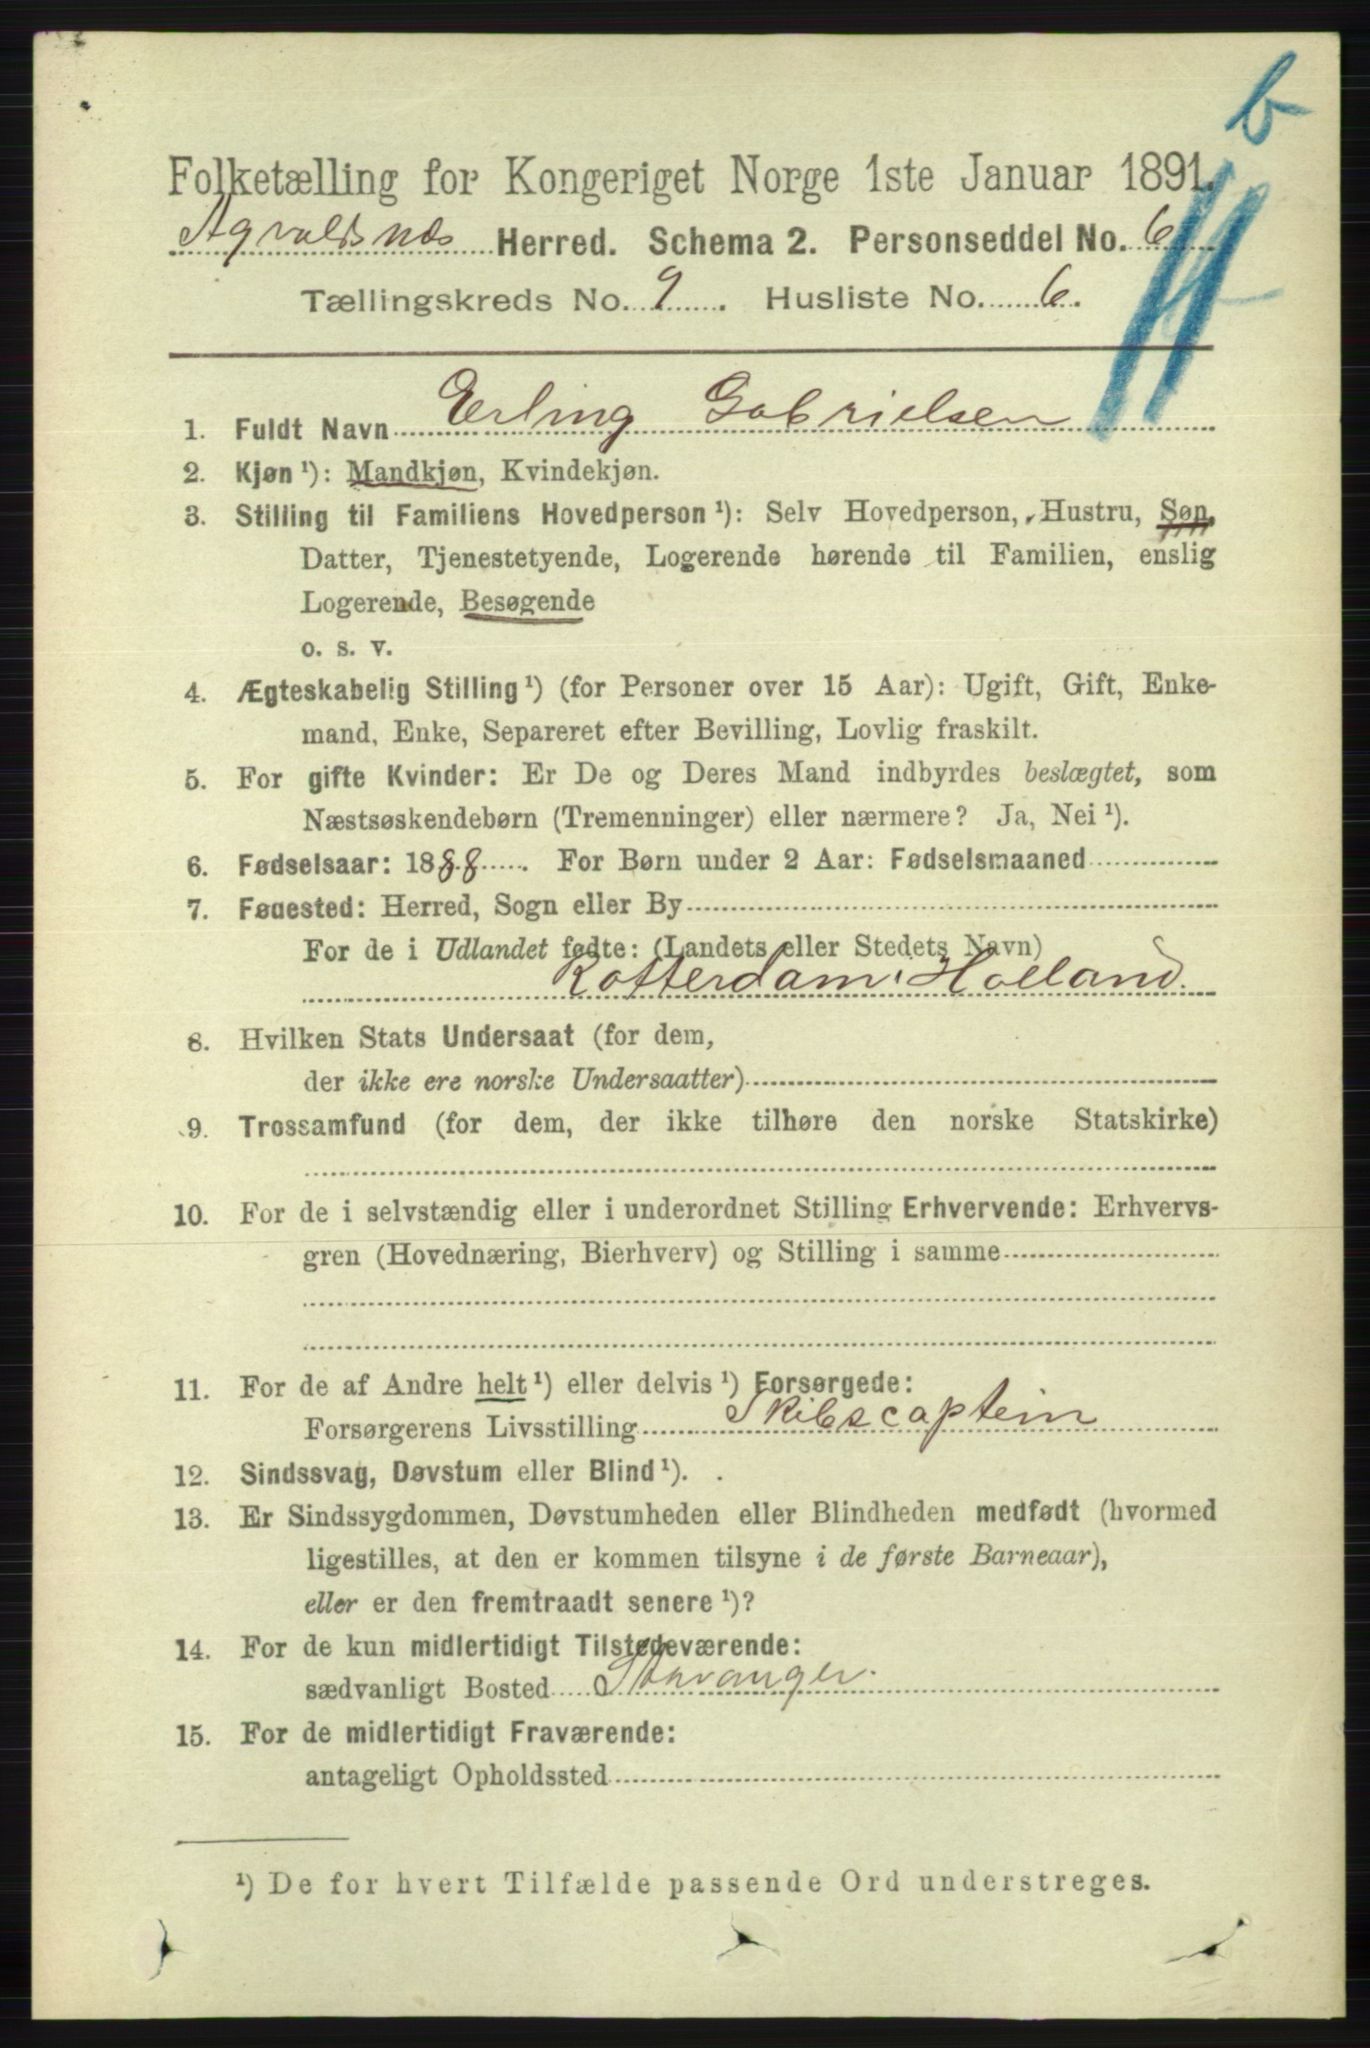 b
Folketælling for Kongeriget Norge 1ste Januar 1891.
Agvaldsnæs Herred. Schema 2. Personseddel No. 6
Tællingskreds No. 9. Husliste No. 6.
1. Fuldt Navn Erling Gabrielsen
2. Kjøn ¹): Mandkjøn, Kvindekjøn.
3. Stilling til Familiens Hovedperson ¹): Selv Hovedperson, Hustru, Søn,
Datter, Tjenestetyende, Logerende hørende til Familien, enslig
Logerende, Besøgende
o. s. v.
4. Ægteskabelig Stilling ¹) (for Personer over 15 Aar): Ugift, Gift, Enke-
mand, Enke, Separeret efter Bevilling, Lovlig fraskilt.
5. For gifte Kvinder: Er De og Deres Mand indbyrdes beslægtet, som
Næstsøskendebørn (Tremenninger) eller nærmere? Ja, Nei ¹).
6. Fødselsaar: 1888. For Børn under 2 Aar: Fødselsmaaned
7. Føuested: Herred, Sogn eller By
For de i Udlandet fødte: (Landets eller Stedets Navn)
Rotterdam i Holland.
8. Hvilken Stats Undersaat (for dem,
der ikke ere norske Undersaatter)
9. Trossamfund (for dem, der ikke tilhøre den norske Statskirke)
10. For de i selvstændig eller i underordnet Stilling Erhvervende: Erhvervs-
gren (Hovednæring, Bierhverv) og Stilling i samme
11. For de af Andre helt ¹) eller delvis ¹) Forsørgede:
Forsørgerens Livsstilling Skibscaptein
12. Sindssvag, Døvstum eller Blind ¹).
13. Er Sindssygdommen, Døvstumheden eller Blindheden medfødt (hvormed
ligestilles, at den er kommen tilsyne i de første Barneaar),
eller er den fremtraadt senere ¹)?
14. For de kun midlertidigt Tilstedeværende:
sædvanligt Bosted Stavanger.
15. For de midlertidigt Fraværende:
antageligt Opholdssted
¹) De for hvert Tilfælde passende Ord understreges.